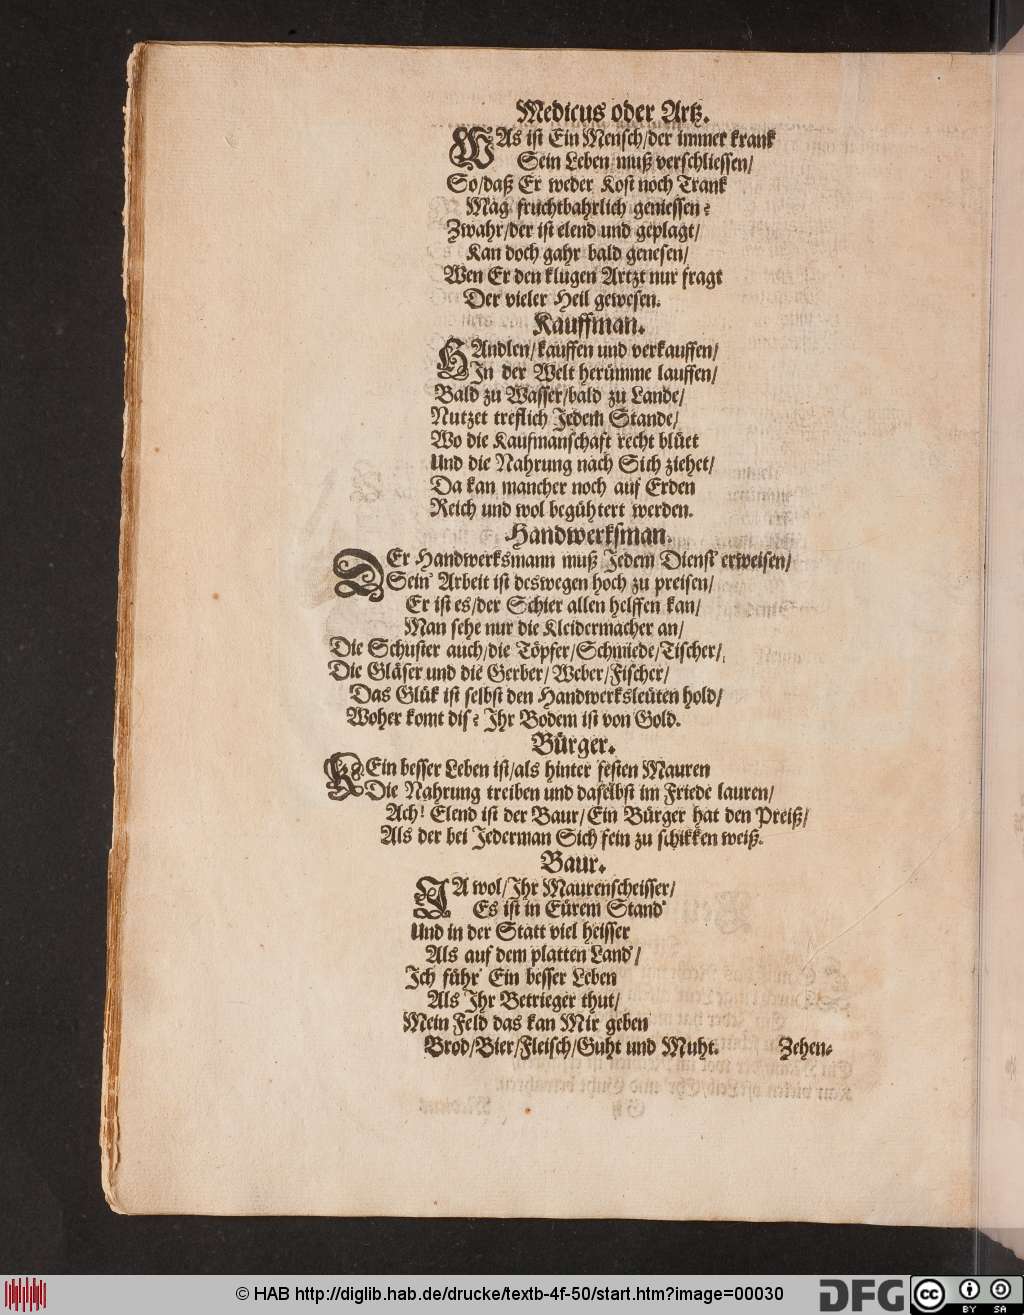 Medicus oder Artz.
WAs ist Ein Mensch/der immer krank
Sein Leben muß verschliessen/
So/daß Er weder Kost noch Trank
Mag fruchtbahrlich geniessen?
Zwahr/der ist elend und geplagt/
Kan doch gahr bald genesen/
Wen Er den klugen Artzt nur fragt
Der vieler Heil gewesen.
Kauffman.
HAndlen/kauffen und verkauffen/
In der Welt herümme lauffen/
Bald zu Wasser/bald zu Lande/
Nutzet treflich Jedem Stande/
Wo die Kaufmanschaft recht blüet
Und die Nahrung nach Sich ziehet/
Da kan mancher noch auf Erden
Reich und wol begühtert werden.
Handwerksman.
DEr Handwerksmann muß Jedem Dienst' erweisen/
Sein' Arbeit ist deswegen hoch zu preisen/
Er ist es/der Schier allen helffen kan/
Man sehe nur die Kleidermacher an/
Die Schuster auch/die Töpfer/Schmiede/Tischer/
Die Gläser und die Gerber/Weber/Fischer/
Das Glük ist selbst den Handwerksleüten hold/
Woher komt dis? Ihr Bodem ist von Gold.
Bürger.
KEin besser Leben ist/als hinter festen Mauren
Die Nahrung treiben und daselbst im Friede lauren/
Ach! Elend ist der Baur/Ein Bürger hat den Preiß/
Als der bei Jederman Sich fein zu schikken weiß.
Baur.
JA wol/Ihr Maurenscheisser/
Es ist in Eürem Stand'
Und in der Statt viel heisser
Als auf dem platten Land'/
Ich führ' Ein besser Leben
Als Ihr Betrieger thut/
Mein Feld das kan Mir geben
Brod/Bier/Fleisch/Guht und Muht. Zehen-
© HAB http://diglib.hab.de/drucke/textb-4f-50/start.htm?image=00030
DFG
cc BY SA